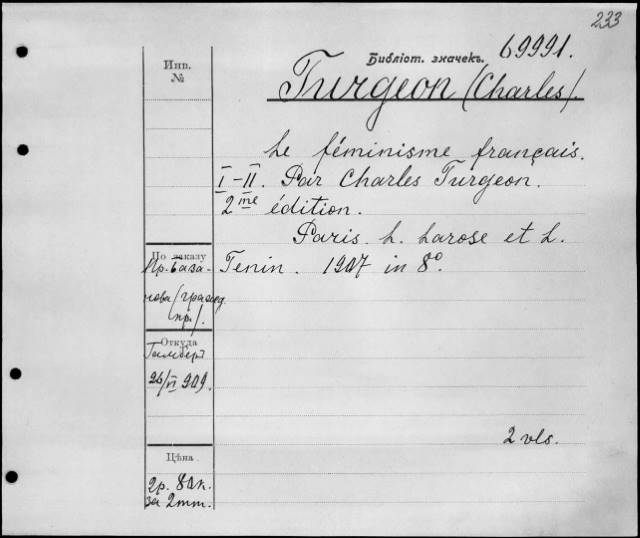 233
Инв.
№
Библіот. значекъ. 69991.
Turgeon (Charles).
Le féminisme français.
I-II. Par Charles Turgeon.
2me édition.
Paris. L. Larose et L.
Tenin. 1907 in 8°.
По заказу
Пр. База-
нова (гражд.
пр.).
Откуда
Гамберъ
26/VI 909.
2 vls.
Цѣна.
2р. 80к.
за 2тт.